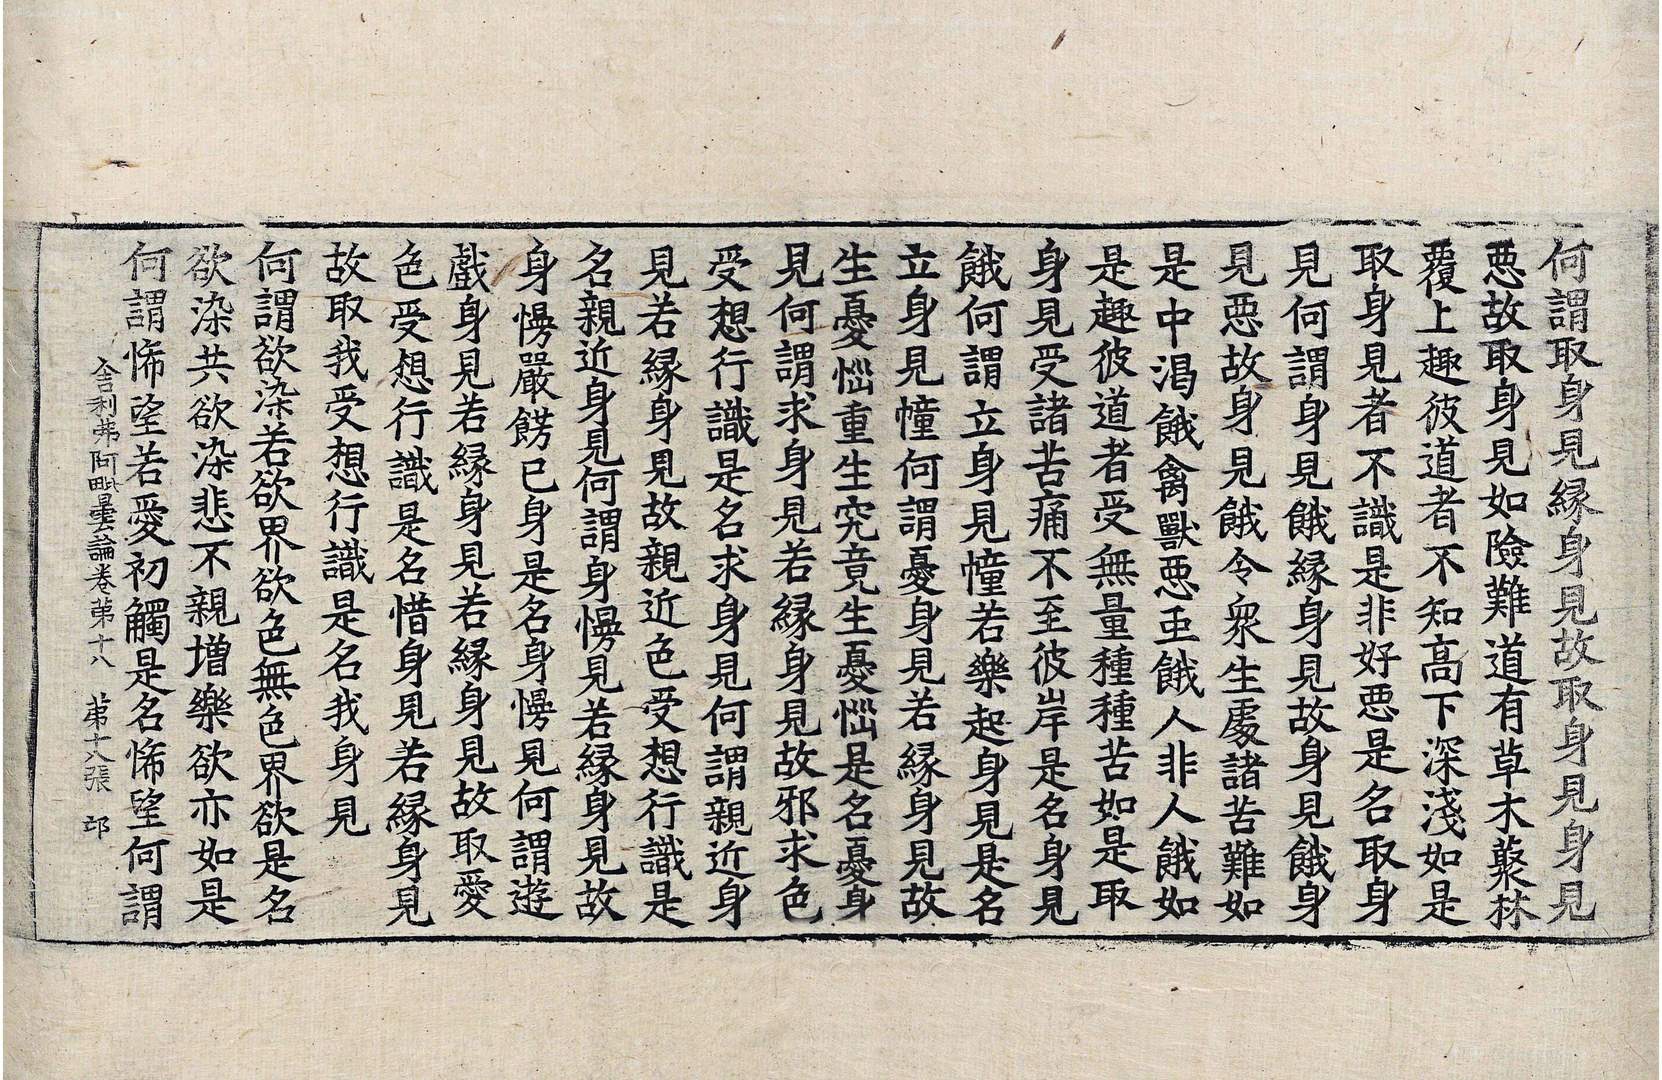 何謂取身見縁身見故取身見身見
惡故取身見如險難道有草木藂林
覆上趣彼道者不知高下深淺如是
取身見者不識是非好惡是名取身
見何謂身見餓縁身見故身見餓身
見惡故身見餓令衆生處諸苦難如
是中渴餓禽獸惡玊餓人非人餓如
是趣彼道者受無量種種苦如是取
身見受諸苦痛不至彼岸是名身見
餓何謂立身見幢若樂起身見是名
立身見幢何謂憂身見若縁身見故
生憂惱重生究竟生憂惱是名憂身
見何謂求身見若縁身見故邪求色
受想行識是名求身見何謂親近身
見若縁身見故親近色受想行識是
名親近身見何謂身慢見若縁身見故
身慢嚴餝已身是名身慢見何謂遊
戲身見若縁身見若縁身見故取愛
色受想行識是名惜身見若縁身見
故取我受想行識是名我身見
何謂欲染若欲界欲色無色界欲是名
欲染共欲染悲不親増樂欲亦如是
何謂悕望若愛初觸是名悕望何謂
舎利弗阿毗曇論卷第十八 第十八張 邙